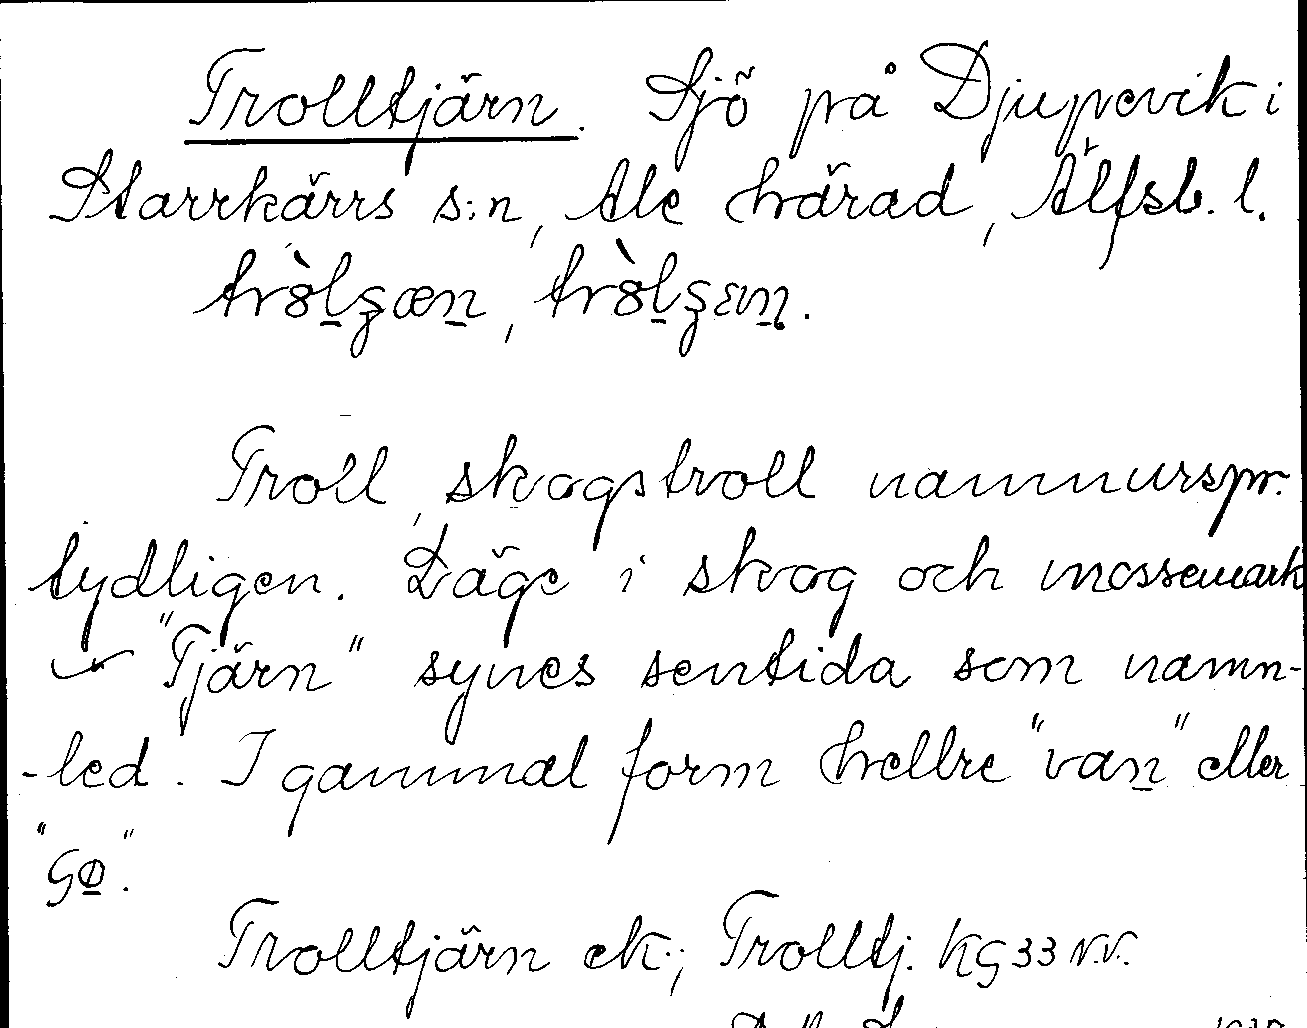 Trolltjärn. Sjö på Djupevik i
Starrkärrs s:n, Ale härad, Älfsb. l.
Troll, skogstroll namnurspr.
tydligen. Läge i skog och mossemark
"Tjärn" synes sentida som namn-
-led. I gammal form hellre "van" eller
Trolltjärn ek.; Trolltj. KG 33 N.V.